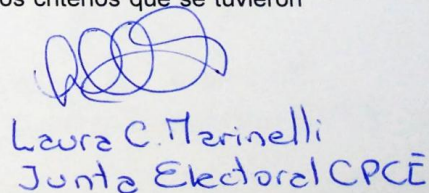 os criterios que se tuvieron
Laura C. Marinelli
Junta Electoral CPCE